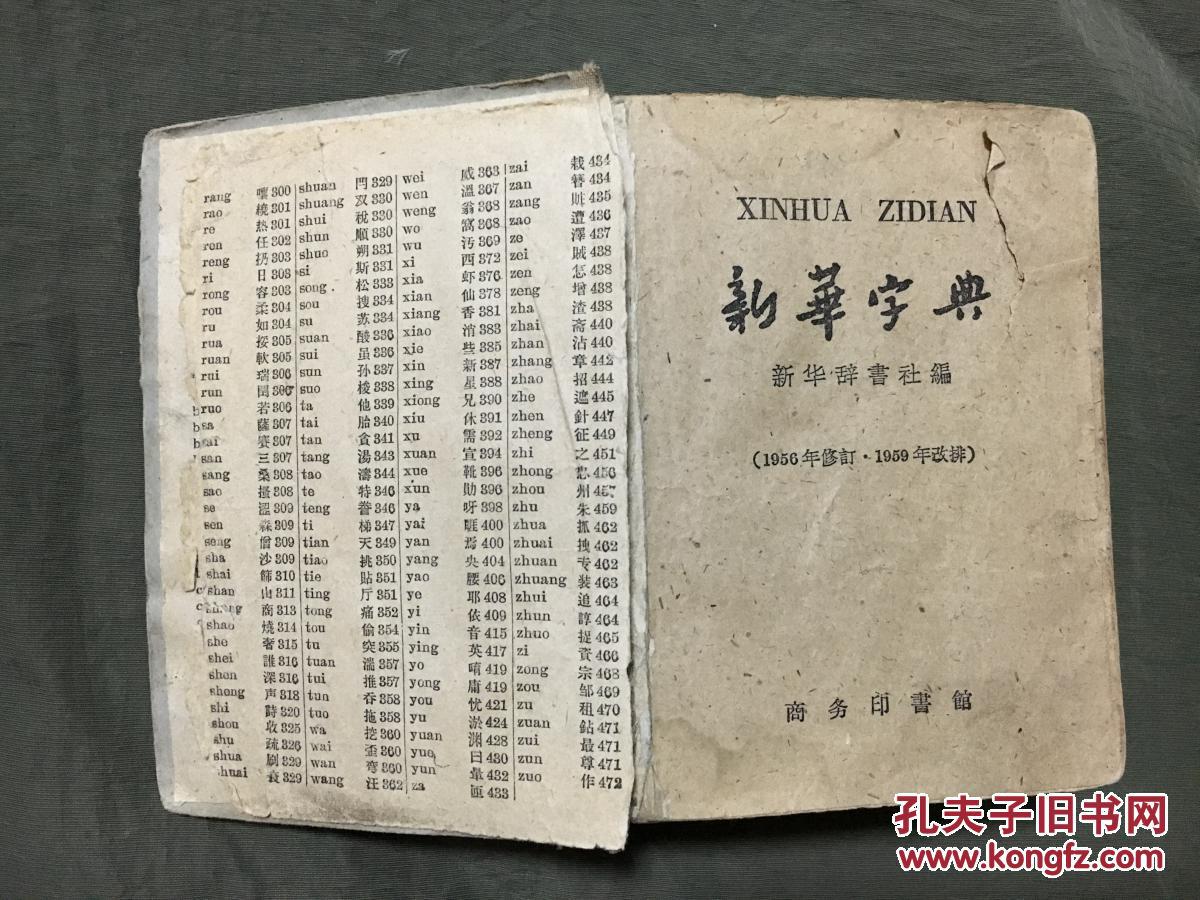 rang 嚷 300 shuan 閂 329 wei 威 363 zai 栽 434
rao 繞 301 shuang 双 330 wen 溫 367 zan 簪 434
re 热 301 shui 稅 330 weng 翁 368 zang 賍 435
ren 任 302 shun 順 330 wo 窩 368 zao 遭 436
reng 扔 303 shuo 朔 331 wu 污 369 ze 澤 437
ri 日 303 si 斯 331 xi 西 372 zei 賊 438
rong 容 303 song 松 333 xia 虾 376 zen 怎 438
rou 柔 304 sou 搜 334 xian 仙 378 zeng 增 438
ru 如 304 su 苏 334 xiang 香 381 zha 渣 438
rua 挼 305 suan 酸 336 xiao 消 383 zhai 斋 440
ruan 軟 305 sui 虽 336 xie 些 385 zhan 沾 440
rui 瑞 306 sun 孙 337 xin 新 387 zhang 章 442
run 閏 306 suo 梭 338 xing 星 388 zhao 招 444
ruo 若 306 ta 他 339 xiong 兄 390 zhe 遮 445
sa 薩 307 tai 胎 340 xiu 休 391 zhen 針 447
sai 賽 307 tan 貪 341 xu 需 392 zheng 征 449
san 三 307 tang 湯 343 xuan 宣 394 zhi 之 451
sang 桑 308 tao 濤 344 xue 靴 396 zhong 忠 456
sao 搔 308 te 特 346 xun 勛 396 zhou 州 457
se 澀 309 teng 誊 346 ya 呀 398 zhu 朱 459
sen 森 309 ti 梯 347 yai 睚 400 zhua 抓 462
seng 僧 309 tian 天 349 yan 焉 400 zhuai 拽 462
sha 沙 309 tiao 挑 350 yang 央 404 zhuan 专 462
shai 篩 310 tie 貼 351 yao 腰 406 zhuang 装 463
shan 山 311 ting 厅 351 ye 耶 408 zhui 追 464
shang 商 313 tong 痛 352 yi 依 409 zhun 諄 464
shao 燒 314 tou 偷 354 yin 音 415 zhuo 捉 465
she 奢 315 tu 突 355 ying 英 417 zi 資 466
shei 誰 316 tuan 湍 357 yo 唷 419 zong 宗 468
shen 深 316 tui 推 357 yong 庸 419 zou 邹 469
sheng 声 318 tun 吞 358 you 忧 421 zu 租 470
shi 詩 320 tuo 拖 358 yu 淤 424 zuan 鉆 471
shou 收 325 wa 挖 360 yuan 渊 428 zui 最 471
shu 疏 326 wai 歪 360 yue 曰 430 zun 尊 471
shua 刷 329 wan 弯 360 yun 暈 432 zuo 作 472
shuai 衰 329 wang 汪 362 za 匝 433
XINHUA ZIDIAN
新華字典
新华辞書社編
(1956年修訂·1959年改排)
商务印書館
孔夫子旧书网
www.kongfz.com